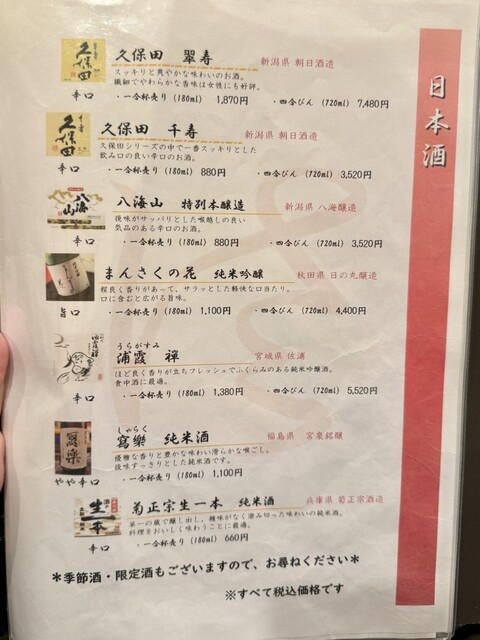 日本酒
久保田 翠寿 新潟県 朝日酒造
スッキリと爽やかな味わいのお酒。
繊細でやわらかな香味は女性にも好評。
辛口 ・一合杯売り (180ml) 1,870円 ・四合びん (720ml) 7,480円
久保田 千寿 新潟県 朝日酒造
久保田シリーズの中で一番スッキリとした
飲み口の良い辛口のお酒。
辛口 ・一合杯売り (180ml) 880円 ・四合びん (720ml) 3,520円
八海山 特別本醸造 新潟県 八海醸造
後味がサッパリとした喉越しの良い
気品のある辛口のお酒。
辛口 ・一合杯売り (180ml) 880円 ・四合びん (720ml) 3,520円
まんさくの花 純米吟醸 秋田県 日の丸醸造
程良く香りがあって、サラッとした軽快な口当たり。
口に含むと広がる旨味。
旨口 ・一合杯売り (180ml) 1,100円 ・四合びん (720ml) 4,400円
うらがすみ
浦霞 禅 宮城県 佐浦
ほど良く香りが立ちフレッシュでふくらみのある純米吟醸酒。
食中酒に最適。
辛口 ・一合杯売り (180ml) 1,380円 ・四合びん (720ml) 5,520円
しゃらく
寫樂 純米酒 福島県 宮泉銘醸
優雅な香りと豊かな味わい滑らかな喉ごし。
後味すっきりとした純米酒です。
やや辛口 ・一合杯売り (180ml) 1,100円
菊正宗生一本 純米酒 兵庫県 菊正宗酒造
単一の蔵で醸し出し、雑味がなく澄み切った味わいの純米酒。
料理をおいしく味わうことに最適。
辛口 ・一合杯売り (180ml) 660円
*季節酒・限定酒もございますので、お尋ねください*
※すべて税込価格です